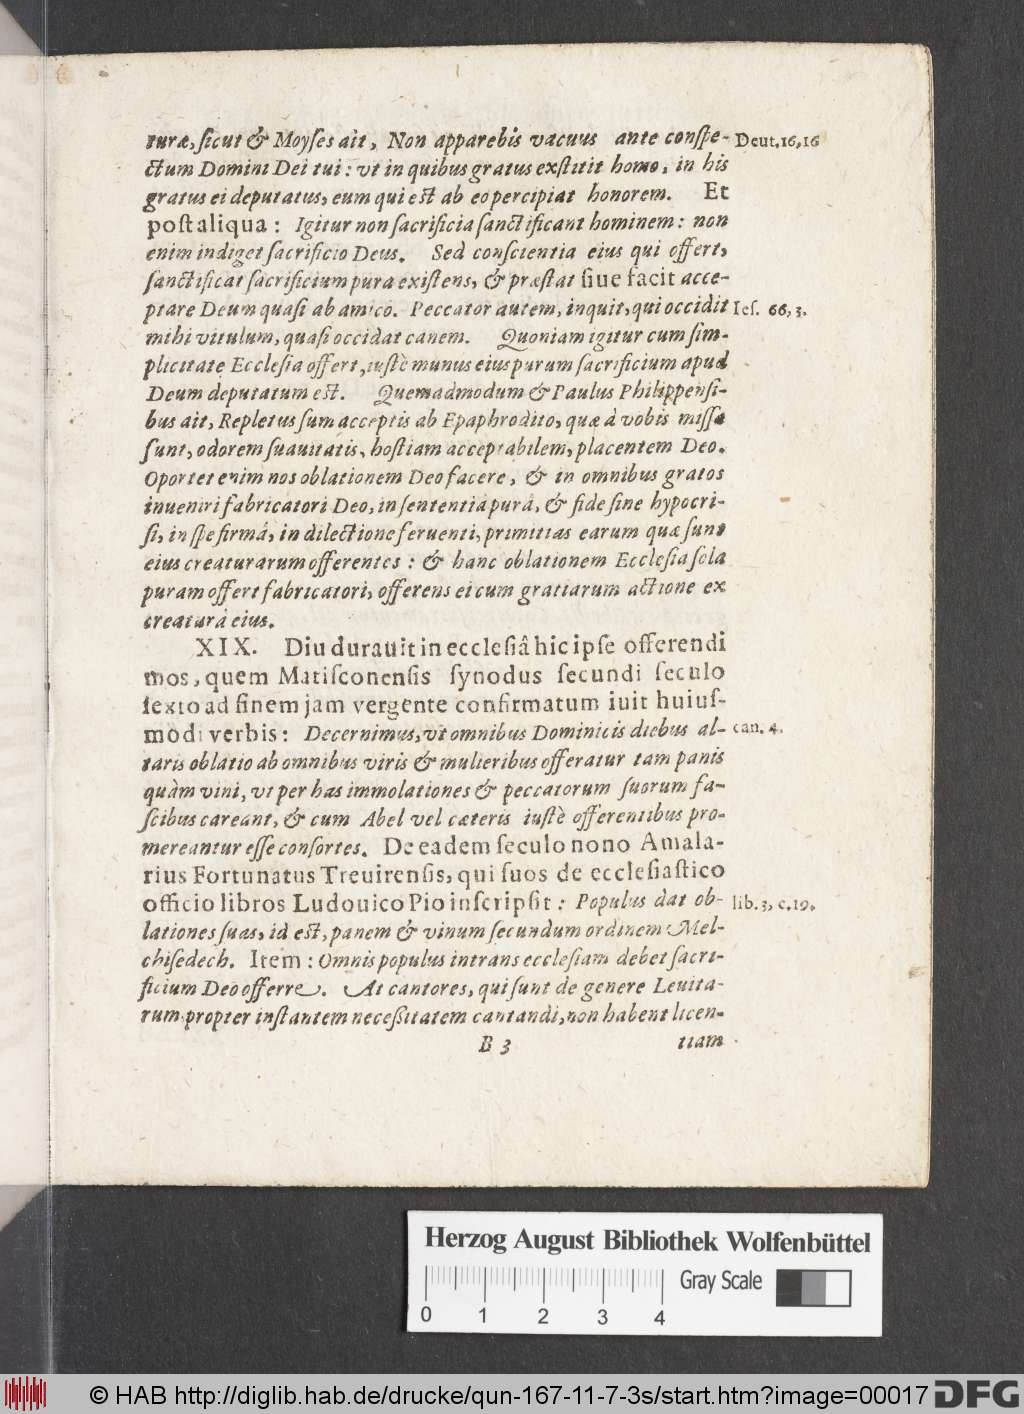 turæ, ſicut & Moyſes ait, Non apparebis vacuus ante conſpe- Deut. 16, 16
ctum Domini Dei tui: vt in quibus gratus exſtitit homo, in his
gratus ei deputatus, eum qui eſt ab eo percipiat honorem. Et
poſt aliqua: Igitur non ſacrificia ſanctificant hominem: non
enim indiget ſacrificio Deus. Sed conſcientia eius qui offert,
ſanctificat ſacrificium pura exiſtens, & præſtat ſiue facit acce-
ptare Deum quaſi ab amico. Peccator autem, inquit, qui occidit Ieſ. 66, 3.
mihi vitulum, quaſi occidat canem. Quoniam igitur cum ſim-
plicitate Eccleſia offert, iuſtè munus eius purum ſacrificium apud
Deum deputatum eſt. Quemadmodum & Paulus Philippenſi-
bus ait, Repletus ſum acceptis ab Epaphrodito, quæ à vobis miſſa
ſunt, odorem ſuauitatis, hoſtiam acceptabilem, placentem Deo.
Oportet enim nos oblationem Deo facere, & in omnibus gratos
inueniri fabricatori Deo, in ſententiâ purâ, & fide ſine hypocri-
ſi, in ſpe firmâ, in dilectione feruenti, primitias earum quæ ſunt
eius creaturarum offerentes: & hanc oblationem Eccleſia ſola
puram offert fabricatori, offerens ei cum gratiarum actione ex
creaturâ eius.
XIX. Diu durauit in eccleſiâ hic ipſe offerendi
mos, quem Matiſconenſis ſynodus ſecundi ſeculo
ſexto ad finem jam vergente confirmatum iuit huiuſ-
modi verbis: Decernimus, vt omnibus Dominicis diebus al- can. 4.
taris oblatio ab omnibus viris & mulieribus offeratur tam panis
quàm vini, vt per has immolationes & peccatorum ſuorum fa-
ſcibus careant, & cum Abel vel cæteris iuſtè offerentibus pro-
mereantur eſſe conſortes. De eadem ſeculo nono Amala-
rius Fortunatus Treuirenſis, qui ſuos de eccleſiaſtico
officio libros Ludouico Pio inſcripſit: Populus dat ob- lib. 3, c. 19.
lationes ſuas, id eſt, panem & vinum ſecundum ordinem Mel-
chiſedech. Item: Omnis populus intrans eccleſiam debet ſacri-
ficium Deo offerre. At cantores, qui ſunt de genere Leuita-
rum propter inſtantem neceßitatem cantandi, non habent licen-
B 3 tiam
Herzog August Bibliothek Wolfenbüttel
Gray Scale
0 1 2 3 4
© HAB http://diglib.hab.de/drucke/qun-167-11-7-3s/start.htm?image=00017 DFG